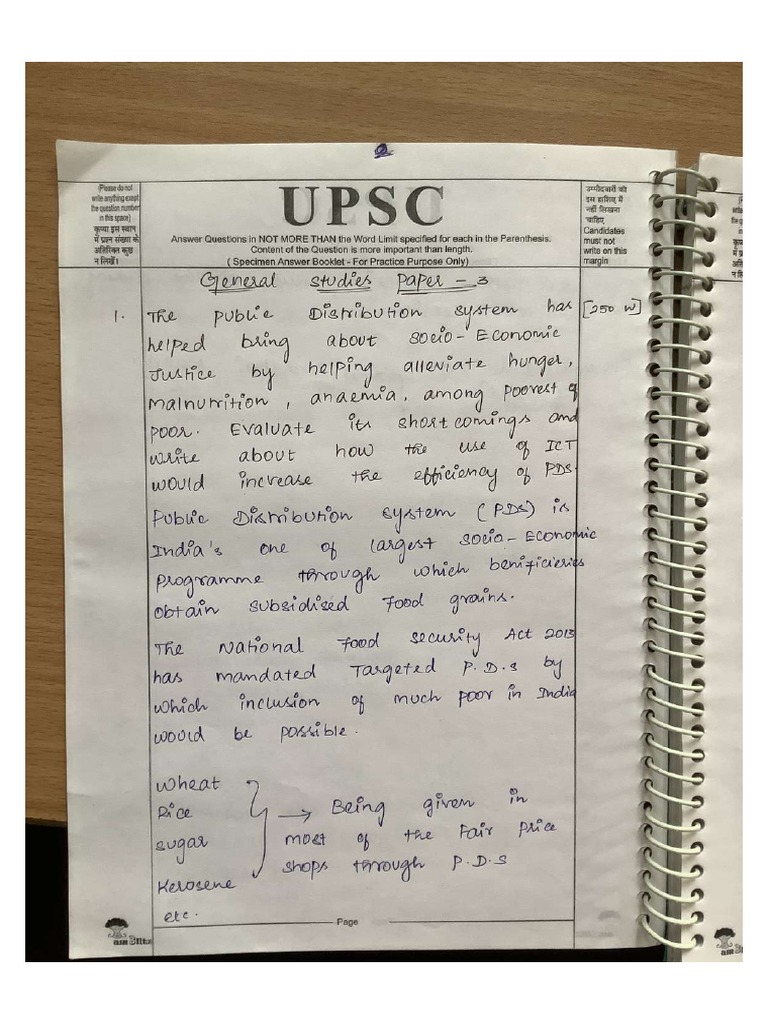 (Please do not
write anything exept
the question number
in this space)
कृप्या इस स्थान
में प्रश्न संख्या के
अतिरिक्त कुछ
न लिखें।
UPSC
Answer Questions in NOT MORE THAN the Word Limit specified for each in the Parenthesis.
Content of the Question is more important than length.
( Specimen Answer Booklet - For Practice Purpose Only)
उम्मीदवारों को
इस हाशिए में
नहीं लिखना
चाहिए
Candidates
must not
write on this
margin
General Studies Paper - 3
1. The Public Distribution System has [250 W]
helped bring about Socio-Economic
Justice by helping alleviate hunger,
Malnurition, anaemia, among poorest of
poor. Evaluate its shortcomings and
write about how the use of ICT
would increase the efficiency of PDS.
Public Distribution System (PDS) is
India's one of largest Socio-Economic
Programme through which benificieries
obtain subsidised Food grains.
The National Food Security Act 2013
has mandated Targeted P.D.S by
which inclusion of much poor in India
would be possible.
Wheat
Rice
Sugar
Kerosene
etc.
→ Being given in
most of the Fair Price
shops through P.D.S
Page